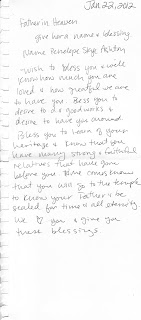 Jan 22, 2012
Father in Heaven
give her a name & blessing
Name Penelope Skye Ashton
Wish to bless you & will
know how much you are
loved & how greatful we are
to have you. Bless you to
desire to do good works &
desire to have you around
Bless you to learn of your
heritage & know that you
have many strong & faithful
relatives that have gone
before you
that you will go to the temple
to know your Father & be
sealed for time & all eternity
We ♡ you & give you
these blessings.